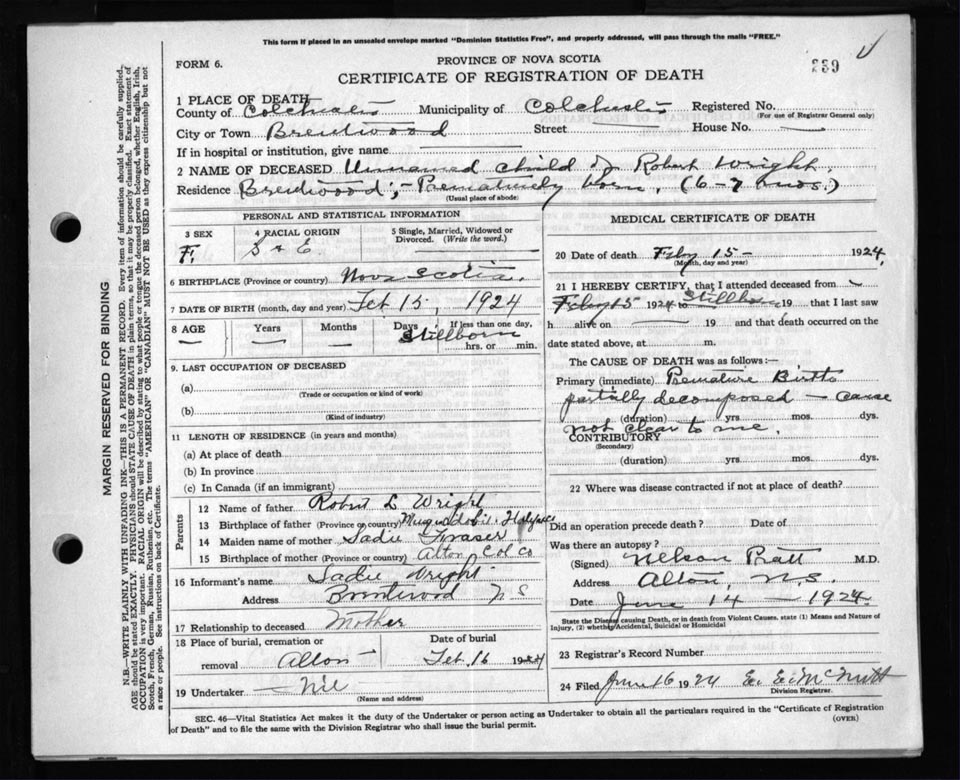 This form if placed in an unsealed envelope marked "Dominion Statistics Free", and properly addressed, will pass through the mails "FREE."
FORM 6.
PROVINCE OF NOVA SCOTIA
CERTIFICATE OF REGISTRATION OF DEATH
MARGIN RESERVED FOR BINDING
N.B.—WRITE PLAINLY WITH UNFADING INK—THIS IS A PERMANENT RECORD. Every item of information should be carefully supplied.
AGE should be stated EXACTLY. PHYSICIANS should STATE CAUSE OF DEATH in plain terms, so that it may be properly classified. Exact statement of
OCCUPATION is very important. RACIAL ORIGIN will be described by stating to what people or tongue the deceased person belonged, whether English, Irish,
Scotch, French, German, Russian, Ruthenian, etc. The terms "AMERICAN" OR "CANADIAN" MUST NOT BE USED as they express citizenship but not
a race or people. See instructions on back of Certificate.
1 PLACE OF DEATH
County of Colchester Municipality of Colchester Registered No.
(For use of Registrar General only)
City or Town Brentwood Street House No.
If in hospital or institution, give name
2 NAME OF DECEASED Unnamed child of Robert Wright
Residence Brentwood;- Prematurely born, (6-7 mos.)
(Usual place of abode)
PERSONAL AND STATISTICAL INFORMATION
3 SEX F.
4 RACIAL ORIGIN S & E
5 Single, Married, Widowed or Divorced. (Write the word.)
6 BIRTHPLACE (Province or country) Nova Scotia.
7 DATE OF BIRTH (month, day and year) Feb 15, 1924
8 AGE Years Months Days If less than one day,
Stillborn hrs. or min.
9. LAST OCCUPATION OF DECEASED
(a)
(Trade or occupation or kind of work)
(b)
(Kind of industry)
11 LENGTH OF RESIDENCE (in years and months)
(a) At place of death
(b) In province
(c) In Canada (if an immigrant)
Parents
12 Name of father Robert L Wright
13 Birthplace of father (Province or country)
14 Maiden name of mother Sadie Fraser
15 Birthplace of mother (Province or country) Alton Col Co
16 Informant's name Sadie Wright
Address Brentwood N S
17 Relationship to deceased Mother
18 Place of burial, cremation or Date of burial
removal Alton Feb. 16 1924
19 Undertaker Nil
(Name and address)
MEDICAL CERTIFICATE OF DEATH
20 Date of death Feby 15 - 1924
(Month, day and year)
21 I HEREBY CERTIFY, that I attended deceased from
Feby 15 1924 to Stillborn 19 that I last saw
h alive on 19 and that death occurred on the
date stated above, at m.
The CAUSE OF DEATH was as follows:—
Primary (immediate) Premature Birth
partially decomposed - cause
(duration) yrs. mos. dys.
not clear to me.
CONTRIBUTORY
(Secondary)
(duration) yrs. mos. dys.
22 Where was disease contracted if not at place of death?
Did an operation precede death? Date of
Was there an autopsy?
(Signed) Nelson Pratt M.D.
Address Alton, N.S.
Date June 14 - 1924
State the Disease causing Death, or in death from Violent Causes, state (1) Means and Nature of
Injury, (2) whether Accidental, Suicidal or Homicidal
23 Registrar's Record Number
24 Filed June 16 1924 E. E. McNutt
Division Registrar.
SEC. 46—Vital Statistics Act makes it the duty of the Undertaker or person acting as Undertaker to obtain all the particulars required in the "Certificate of Registration
of Death" and to file the same with the Division Registrar who shall issue the burial permit.
(OVER)